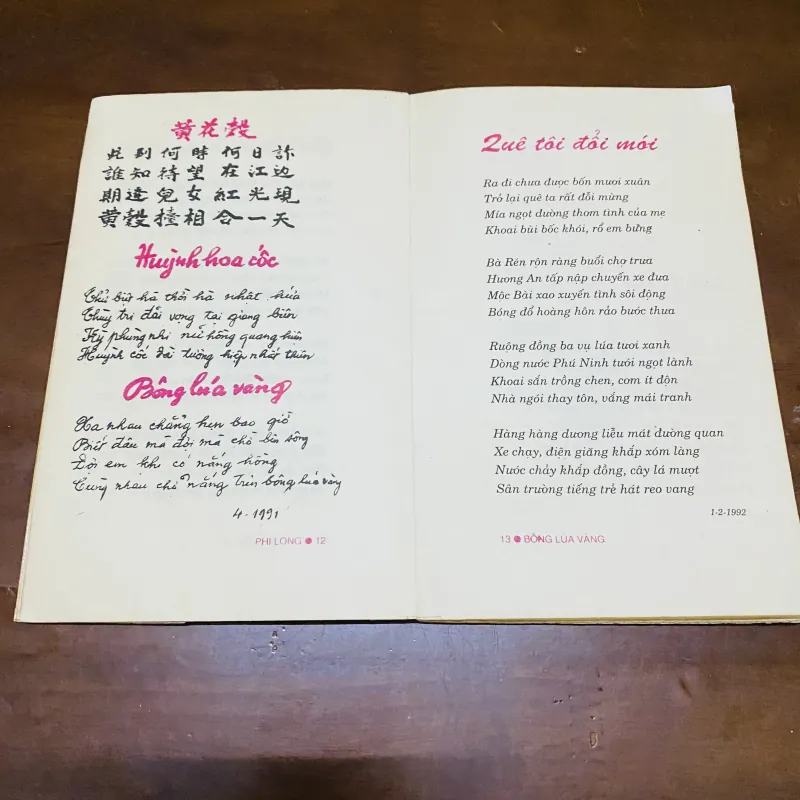 黄花榖
此别何時何日許
誰知待望在江边
期逢兒女紅光現
黄榖擡相合一天
Huỳnh hoa cốc
Thử biệt hà thời hà nhật hứa
Thùy tri đãi vọng tại giang biên
Kỳ phùng nhi nữ hồng quang hiện
Huỳnh cốc đài tương hiệp nhất thiên
Bông lúa vàng
Xa nhau chẳng hẹn bao giờ
Biết đâu mà đợi mà chờ bên sông
Đợi em khi có nắng hồng
Cùng nhau chở nắng trên bông lúa vàng
4-1991
PHI LONG ● 12
Quê tôi đổi mới
Ra đi chưa được bốn mươi xuân
Trở lại quê ta rất đỗi mừng
Mía ngọt đường thơm tình của mẹ
Khoai bùi bốc khói, rổ em bưng
Bà Rén rộn ràng buổi chợ trưa
Hương An tấp nập chuyến xe đưa
Mộc Bài xao xuyến tình sôi động
Bóng đổ hoàng hôn rảo bước thưa
Ruộng đồng ba vụ lúa tươi xanh
Dòng nước Phú Ninh tưới ngọt lành
Khoai sắn trồng chen, cơm ít độn
Nhà ngói thay tôn, vắng mái tranh
Hàng hàng dương liễu mát đường quan
Xe chạy, điện giăng khắp xóm làng
Nước chảy khắp đồng, cây lá mượt
Sân trường tiếng trẻ hát reo vang
1-2-1992
13 ● BÔNG LÚA VÀNG